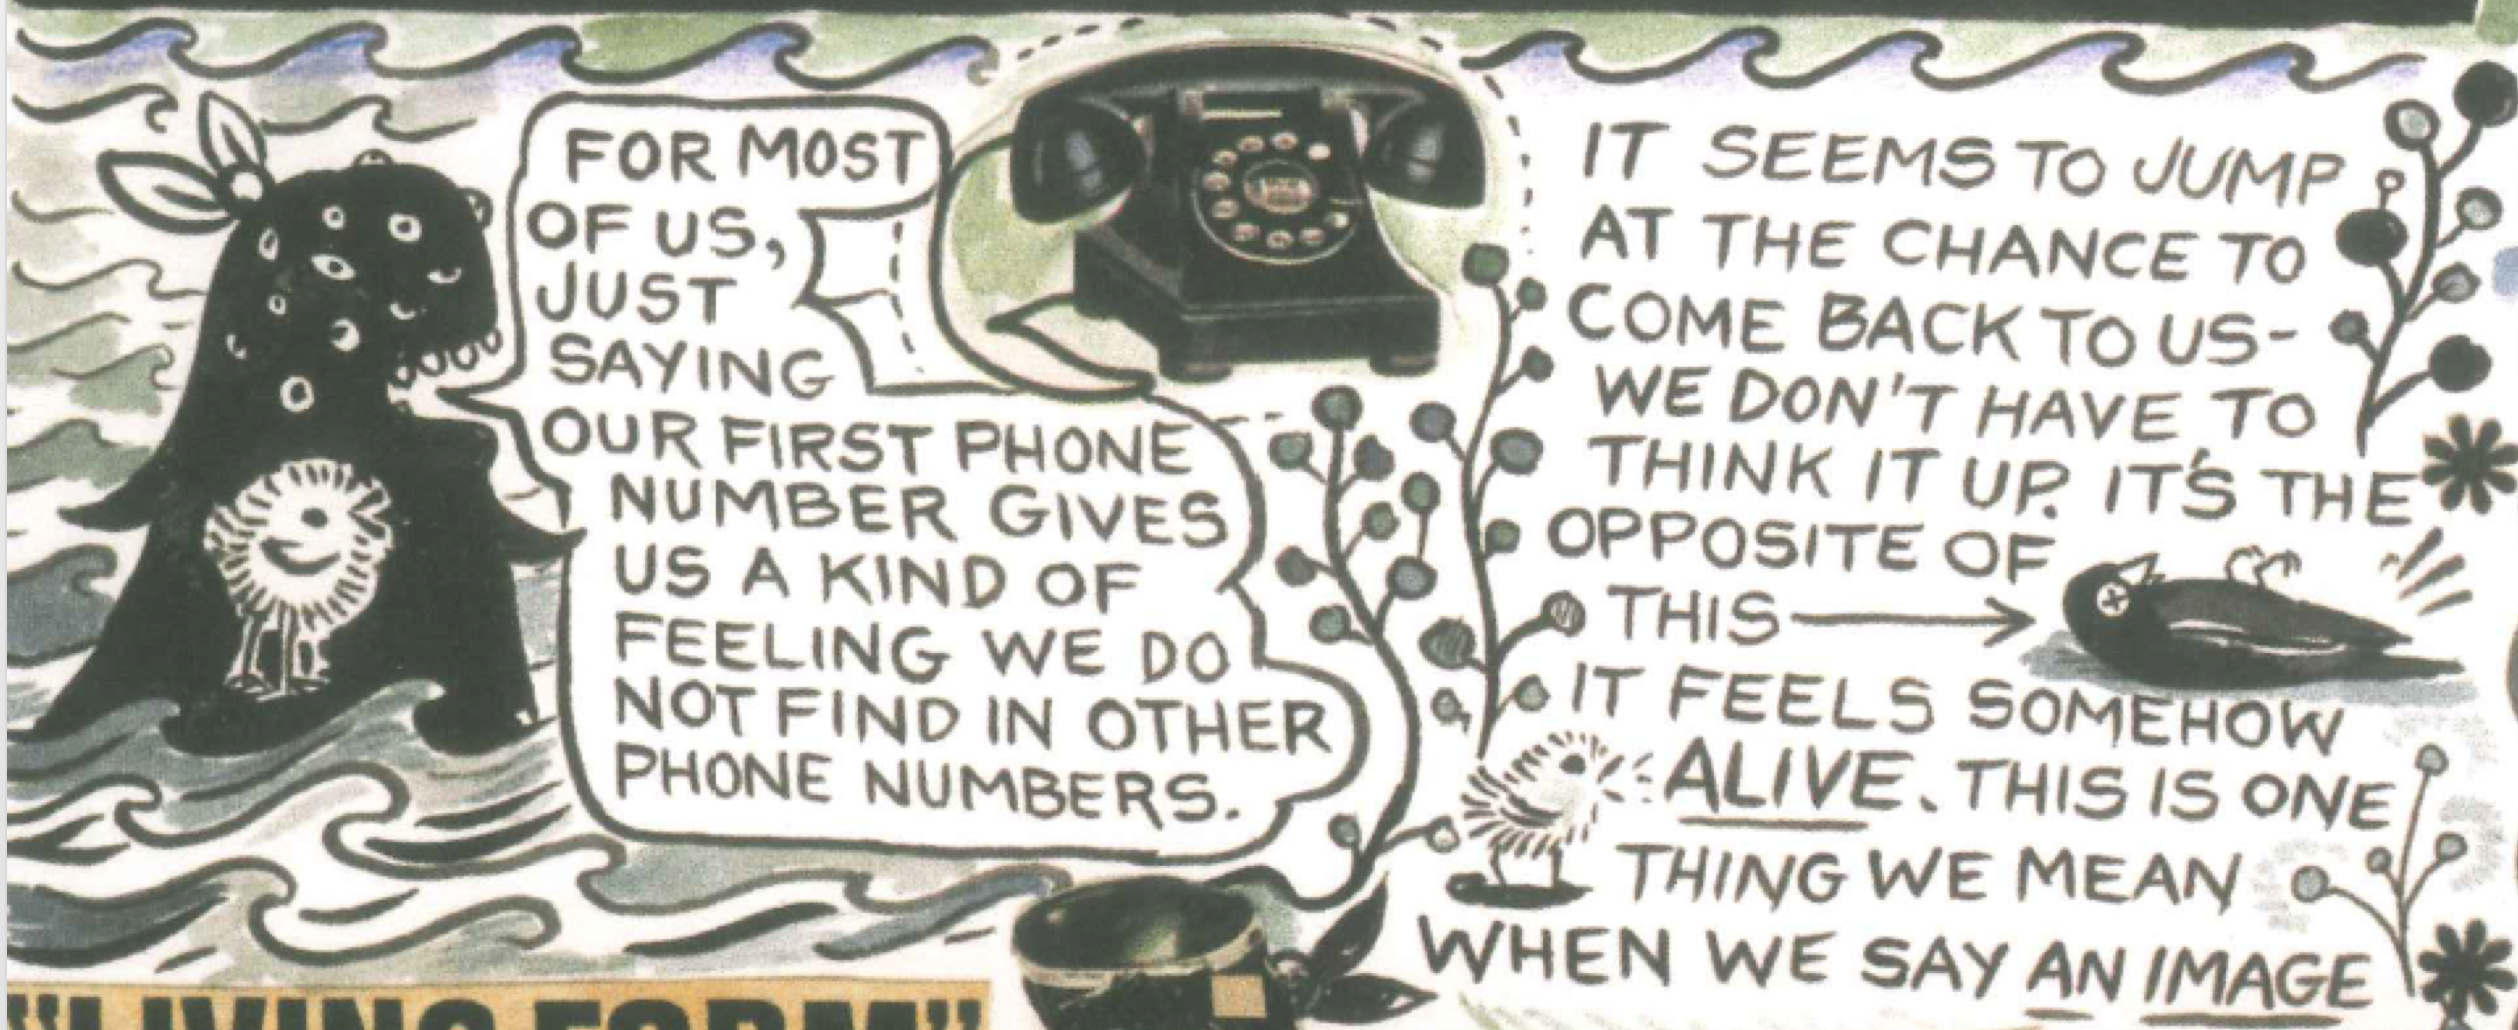 FOR MOST
OF US,
JUST
SAYING
OUR FIRST PHONE
NUMBER GIVES
US A KIND OF
FEELING WE DO
NOT FIND IN OTHER
PHONE NUMBERS.
IT SEEMS TO JUMP
AT THE CHANCE TO
COME BACK TO US-
WE DON'T HAVE TO
THINK IT UP. IT'S THE
OPPOSITE OF
THIS
IT FEELS SOMEHOW
ALIVE. THIS IS ONE
THING WE MEAN
WHEN WE SAY AN IMAGE
"LIVING FORM"